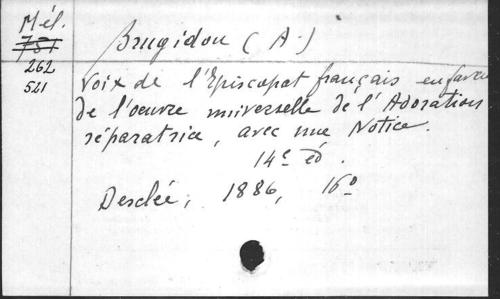 Mél.
751
262
541
Brugidou (A.)
Voix de l'Episcopat français en faveur
de l'oeuvre universelle de l'Adoration
réparatrice, avec une Notice.
14e éd.
Desclée, 1886, 16o